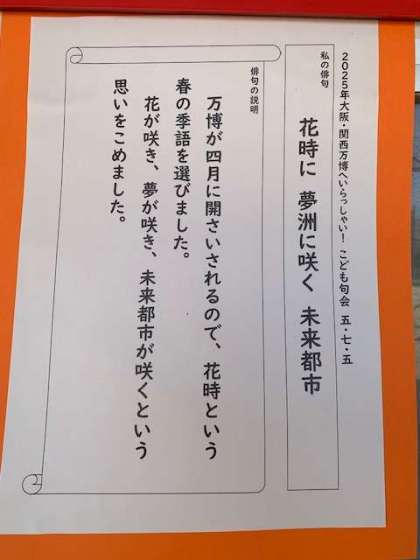 2025年大阪・関西万博へいらっしゃい！ こども句会 五・七・五
私の俳句
花時に 夢洲に咲く 未来都市
俳句の説明
万博が四月に開さいされるので、花時という
春の季語を選びました。
花が咲き、夢が咲き、未来都市が咲くという
思いをこめました。